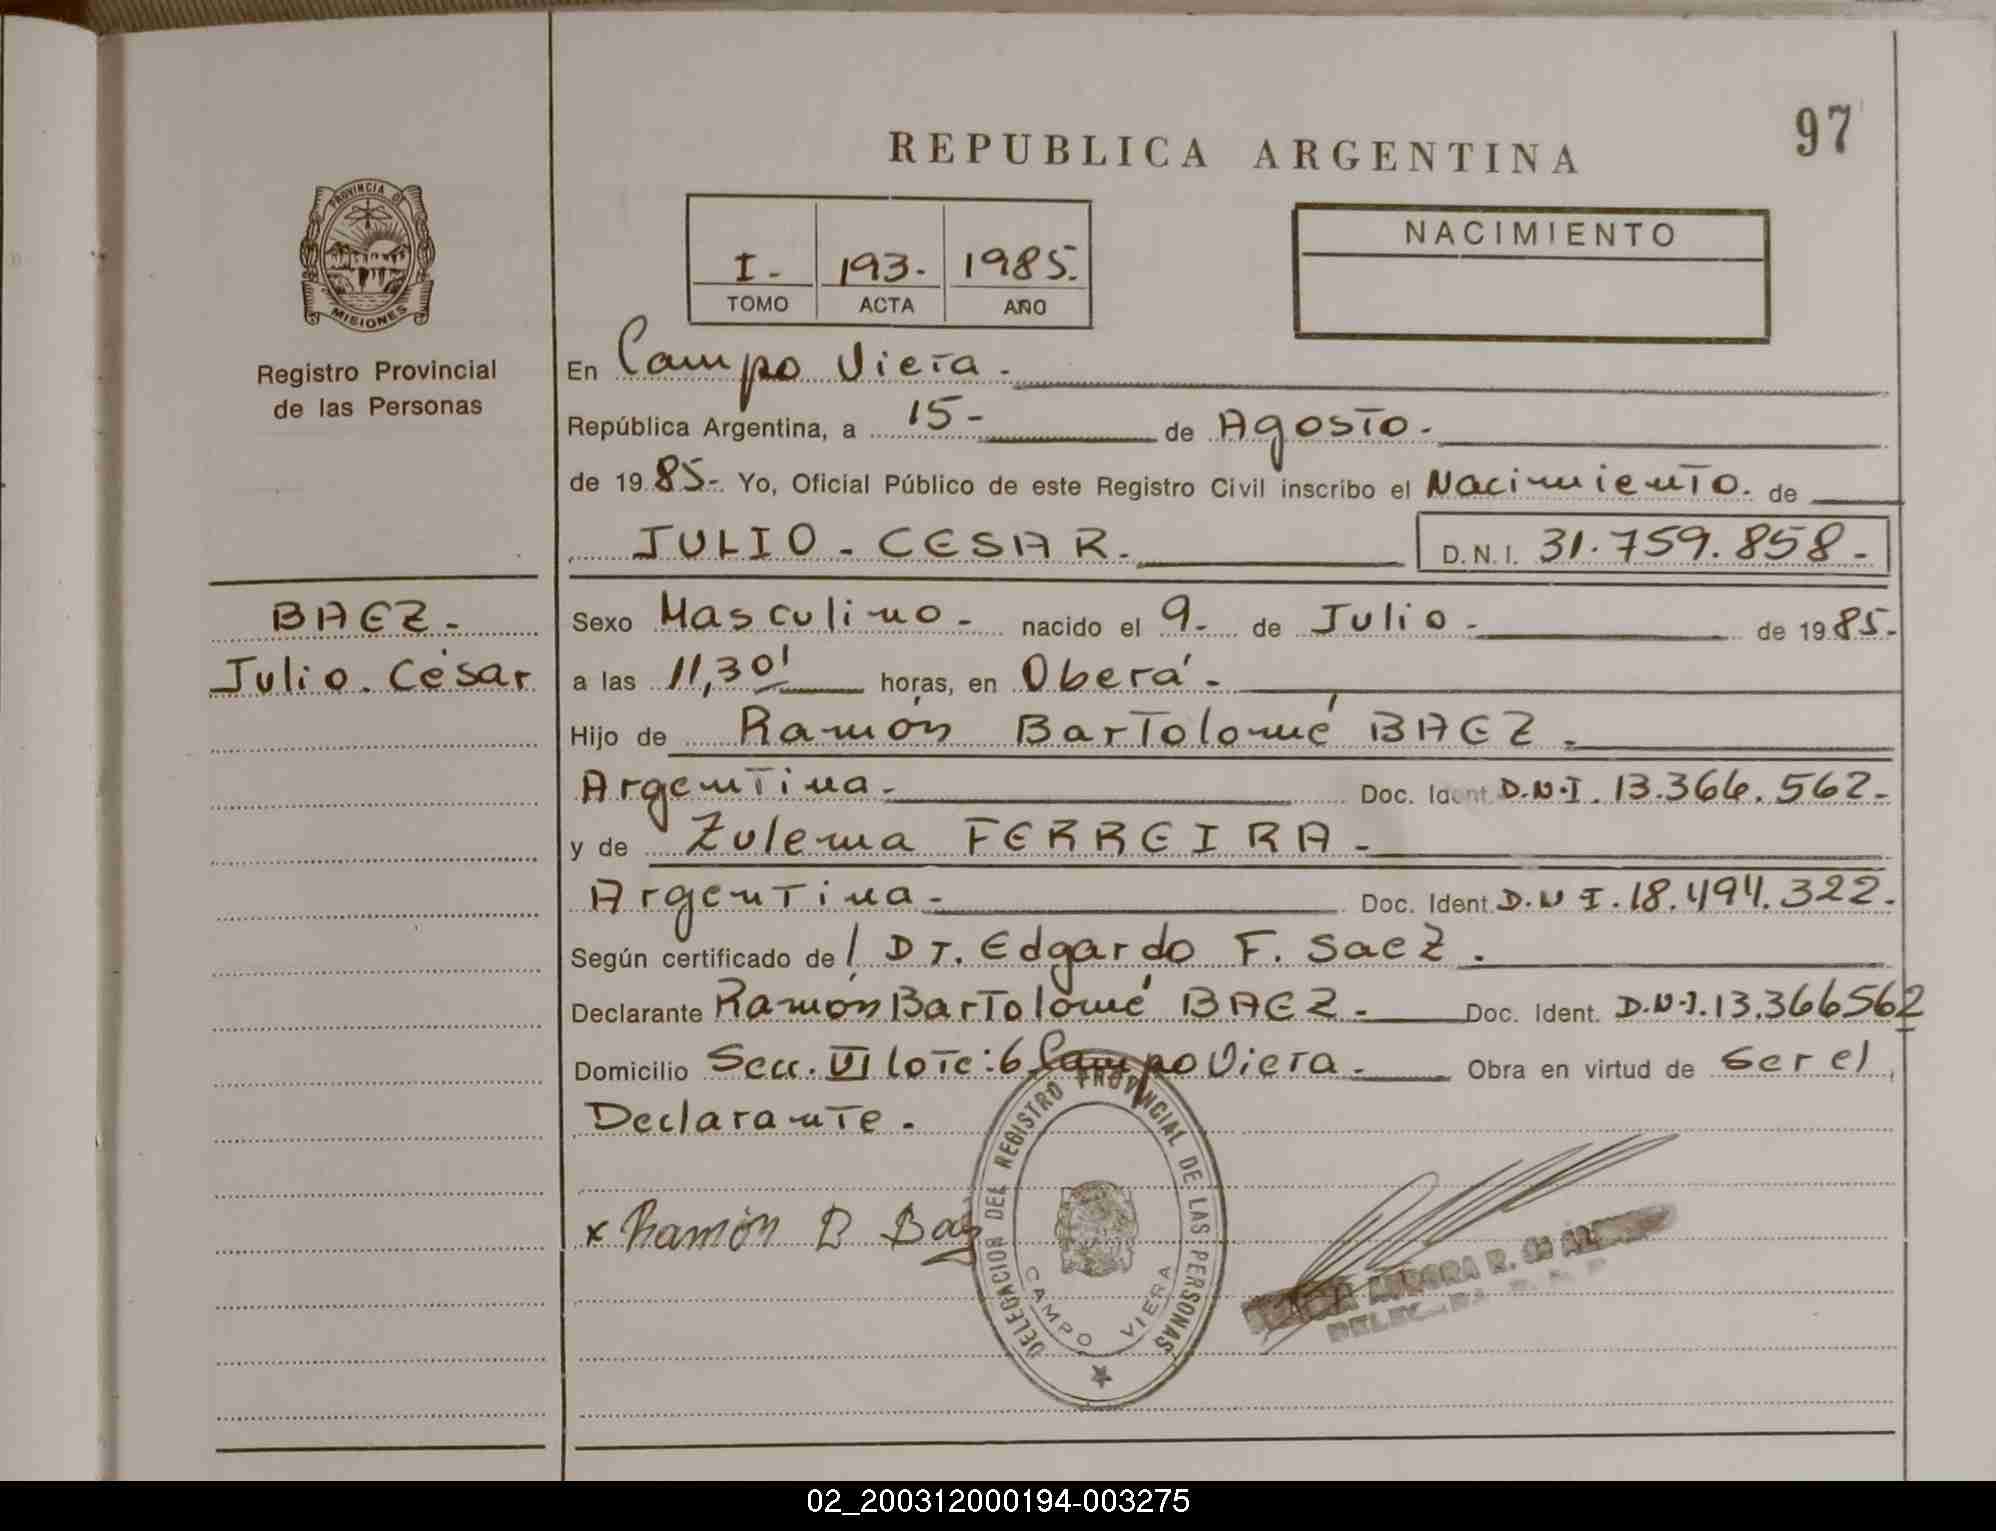 97
REPUBLICA ARGENTINA
PROVINCIA DE
MISIONES
Registro Provincial
de las Personas
I- 193- 1985.
TOMO ACTA AÑO
NACIMIENTO
En Campo Viera -
República Argentina, a 15- de Agosto-
de 1985- Yo, Oficial Público de este Registro Civil inscribo el Nacimiento. de
JULIO - CESAR- D.N.I. 31.759.858-
BAEZ-
Julio. César
Sexo Masculino- nacido el 9- de Julio- de 1985-
a las 11,30' horas, en Oberá-
Hijo de Ramón Bartolomé BAEZ-
Argentina- Doc. Ident. D.N.I. 13.366.562-
y de Zulema FERREIRA-
Argentina- Doc. Ident. D.N I. 18.494.322-
Según certificado de Dr. Edgardo F. SaeZ.
Declarante Ramón Bartolomé BAEZ- Doc. Ident. D.N.I. 13.366562
Domicilio Secc. VI lote: 6 Campo Viera- Obra en virtud de Ser el
Declarante.
x Ramón B Baez
DELEGACION DEL REGISTRO PROVINCIAL DE LAS PERSONAS
CAMPO VIERA
AURORA R. de
02_200312000194-003275